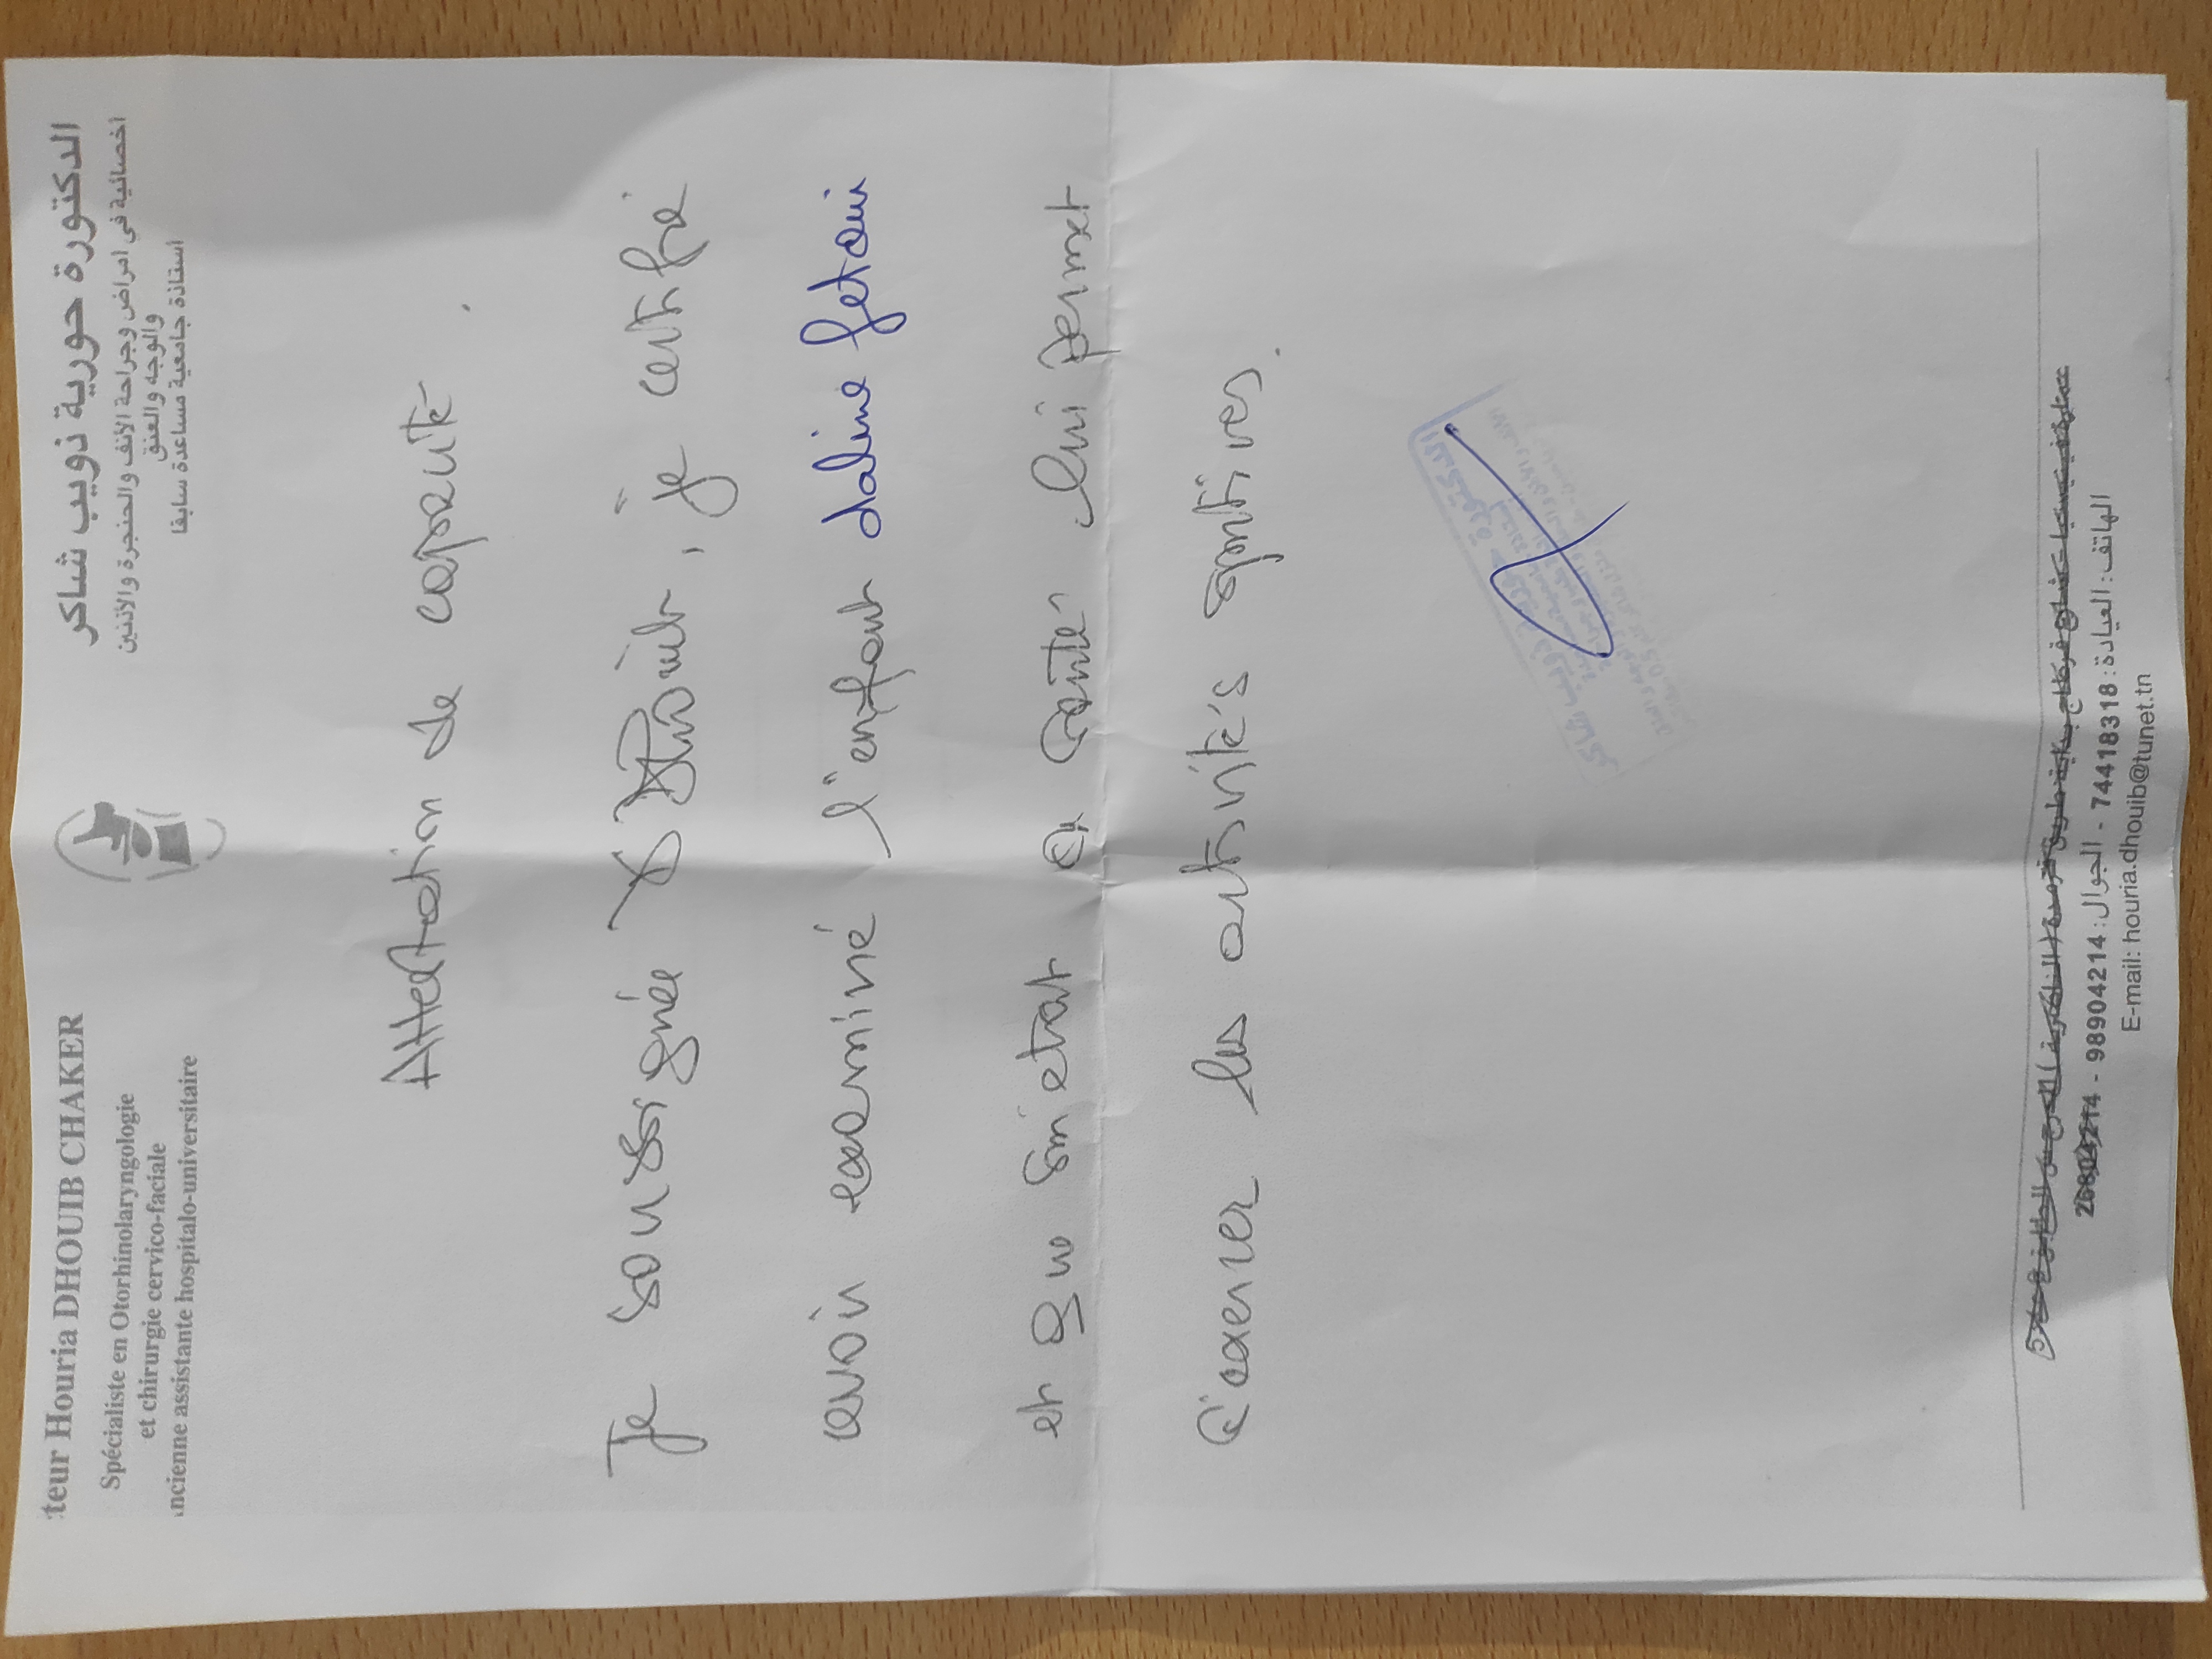 teur Houria DHOUIB CHAKER
Spécialiste en Otorhinolaryngologie
et chirurgie cervico-faciale
ncienne assistante hospitalo-universitaire
الدكتورة حورية ذويب شاكر
أخصائية في أمراض وجراحة الأنف والحنجرة والأذنين
والوجه والعنق
أستاذة جامعية مساعدة سابقا
Attestation de capacité.
Je soussignée Dr Dhouib, je certifie
avoir examiné l'enfant daline fetoui
et que son état de santé lui permet
d'exercer les activités sportives.
الدكتورة حورية ذويب شاكر
26804214 - الجوال : 98904214 - الهاتف : العيادة : 74418318
E-mail: houria.dhouib@tunet.tn